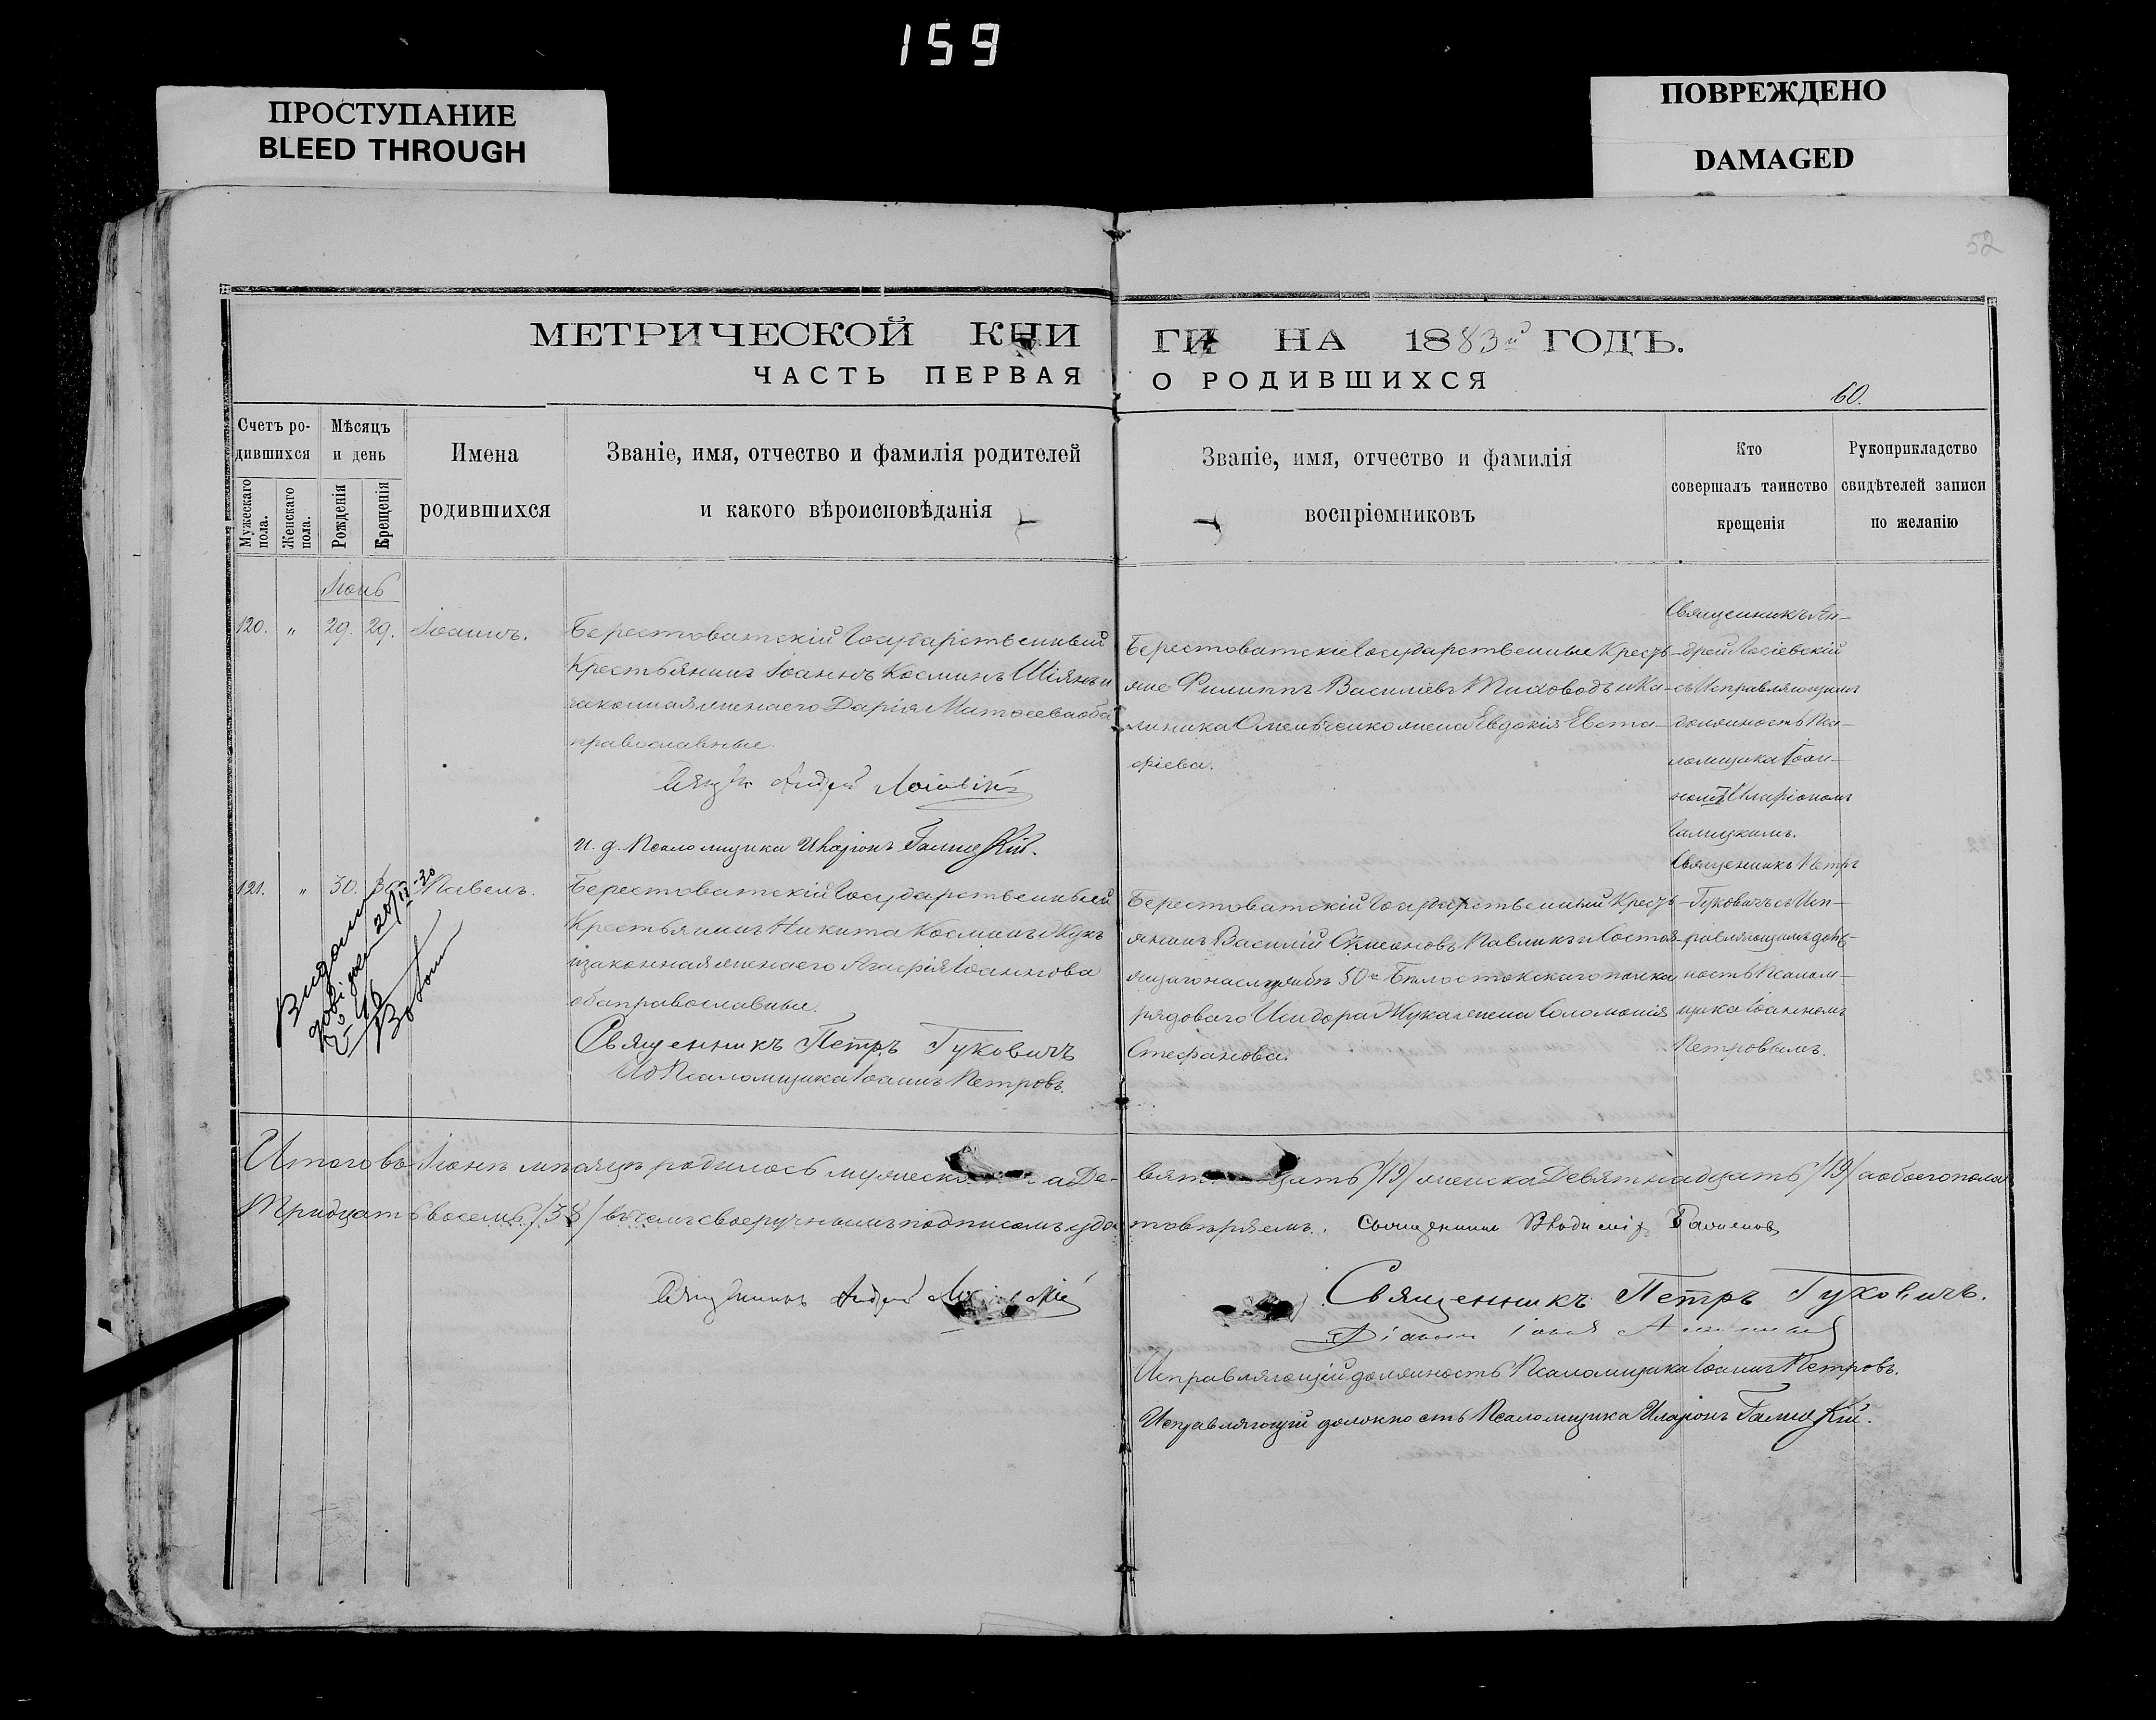 159
ПРОСТУПАНИЕ
BLEED THROUGH
ПОВРЕЖДЕНО
DAMAGED
52
МЕТРИЧЕСКОЙ КНИ
ГИ НА 1883й ГОДЪ.
ЧАСТЬ ПЕРВАЯ
О РОДИВШИХСЯ
60.
Счетъ ро-
дившихся
Мужескаго пола.
Женскаго пола.
Мѣсяцъ
и день
Рожденія
Крещенія
Имена
родившихся
Званіе, имя, отчество и фамилія родителей
и какого вѣроисповѣданія
Званіе, имя, отчество и фамилія
воспріемниковъ
Кто
совершалъ таинство
крещенія
Рукоприкладство
свидѣтелей записи
по желанію
Іюнь
120. " 29. 29. Іоаннъ.
Берестоватскій Государственный
Крестьянинъ Іоаннъ Косминъ Шіянъ и
законная жена его Дарія Матѳеева оба
православные.
Андрей
и. д. Псаломщика Иларіонъ Галицкій.
Берестоватскіе Государственные Кресть-
яне Филиппъ Василіевъ Тиховодъ и Ка-
линика Омельченко жена Евдокія Евста-
фіева.
Священникъ Ан-
дрей Лосіевскій
съ Исправляющимъ
должность Пса-
ломщика
Иларіономъ
Галицкимъ.
121. " 30. 30. Павелъ.
Берестоватскій Государственный
Крестьянинъ Никита Косминъ Жукъ
и законная жена его Агафія Іоаннова
оба православные.
Священникъ Петръ Гуковичъ
ИД Псаломщика Іоаннъ Петровъ.
Берестоватскій Государственный Кресть-
янинъ Василій Павликъ и Состоя-
50го Бѣлостокскаго полка
рядоваго Исидора Жука жена Соломонія
Стефанова.
Священникъ Петръ
Гуковичъ съ Исп-
равляющимъ долж-
ность Псалом-
щика Іоанномъ
Петровымъ.
Видано
Итого въ Іюнѣ мѣсяцѣ родилось мужеска а Де-
вят цать /19/ женска Девятнадцать /19/ а обоего пола
Тридцать восемь /38/ въ чемъ своеручнымъ подписомъ удо-
стовѣряемъ. Священникъ Владиміръ
Священникъ Андрей
Священникъ Петръ Гуковичъ.
Исправляющій должность Псаломщика Іоаннъ Петровъ.
Исправляющій должность Псаломщика Иларіонъ Галицкій.